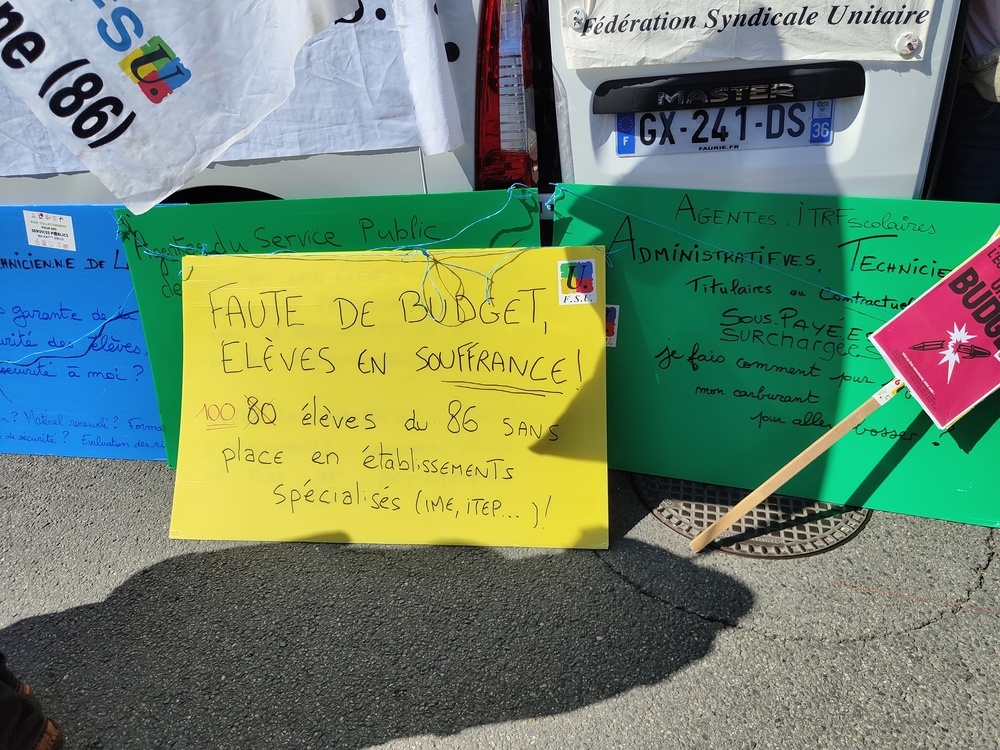 S.U.
ne (86)
Fédération Syndicale Unitaire
MASTER
F GX-241-DS 36
FAURIE.FR
SERVICES PUBLICS
HNICIEN.NE DE L
garante de la
urité des élèves,
securité à moi ?
? Matériel renouvelé ? Forma
de sécurité ? Evaluation des ri
Agentes du Service Public
de
FAUTE DE BUDGET,
ELÈVES EN SOUFFRANCE !
U.
F.S.U.
100 80 élèves du 86 SANS
place en établissements
spécialisés (IME, ITEP... ) !
AGENT.ES . ITRF scolaires
ADMINISTRATIF.VES, TECHNICIE
Titulaires ou Contractuel
SOUS-PAYÉ.E.S
SURCHARGÉE.S
je fais comment pour
mon carburant
pour aller bosser ?
BUDG